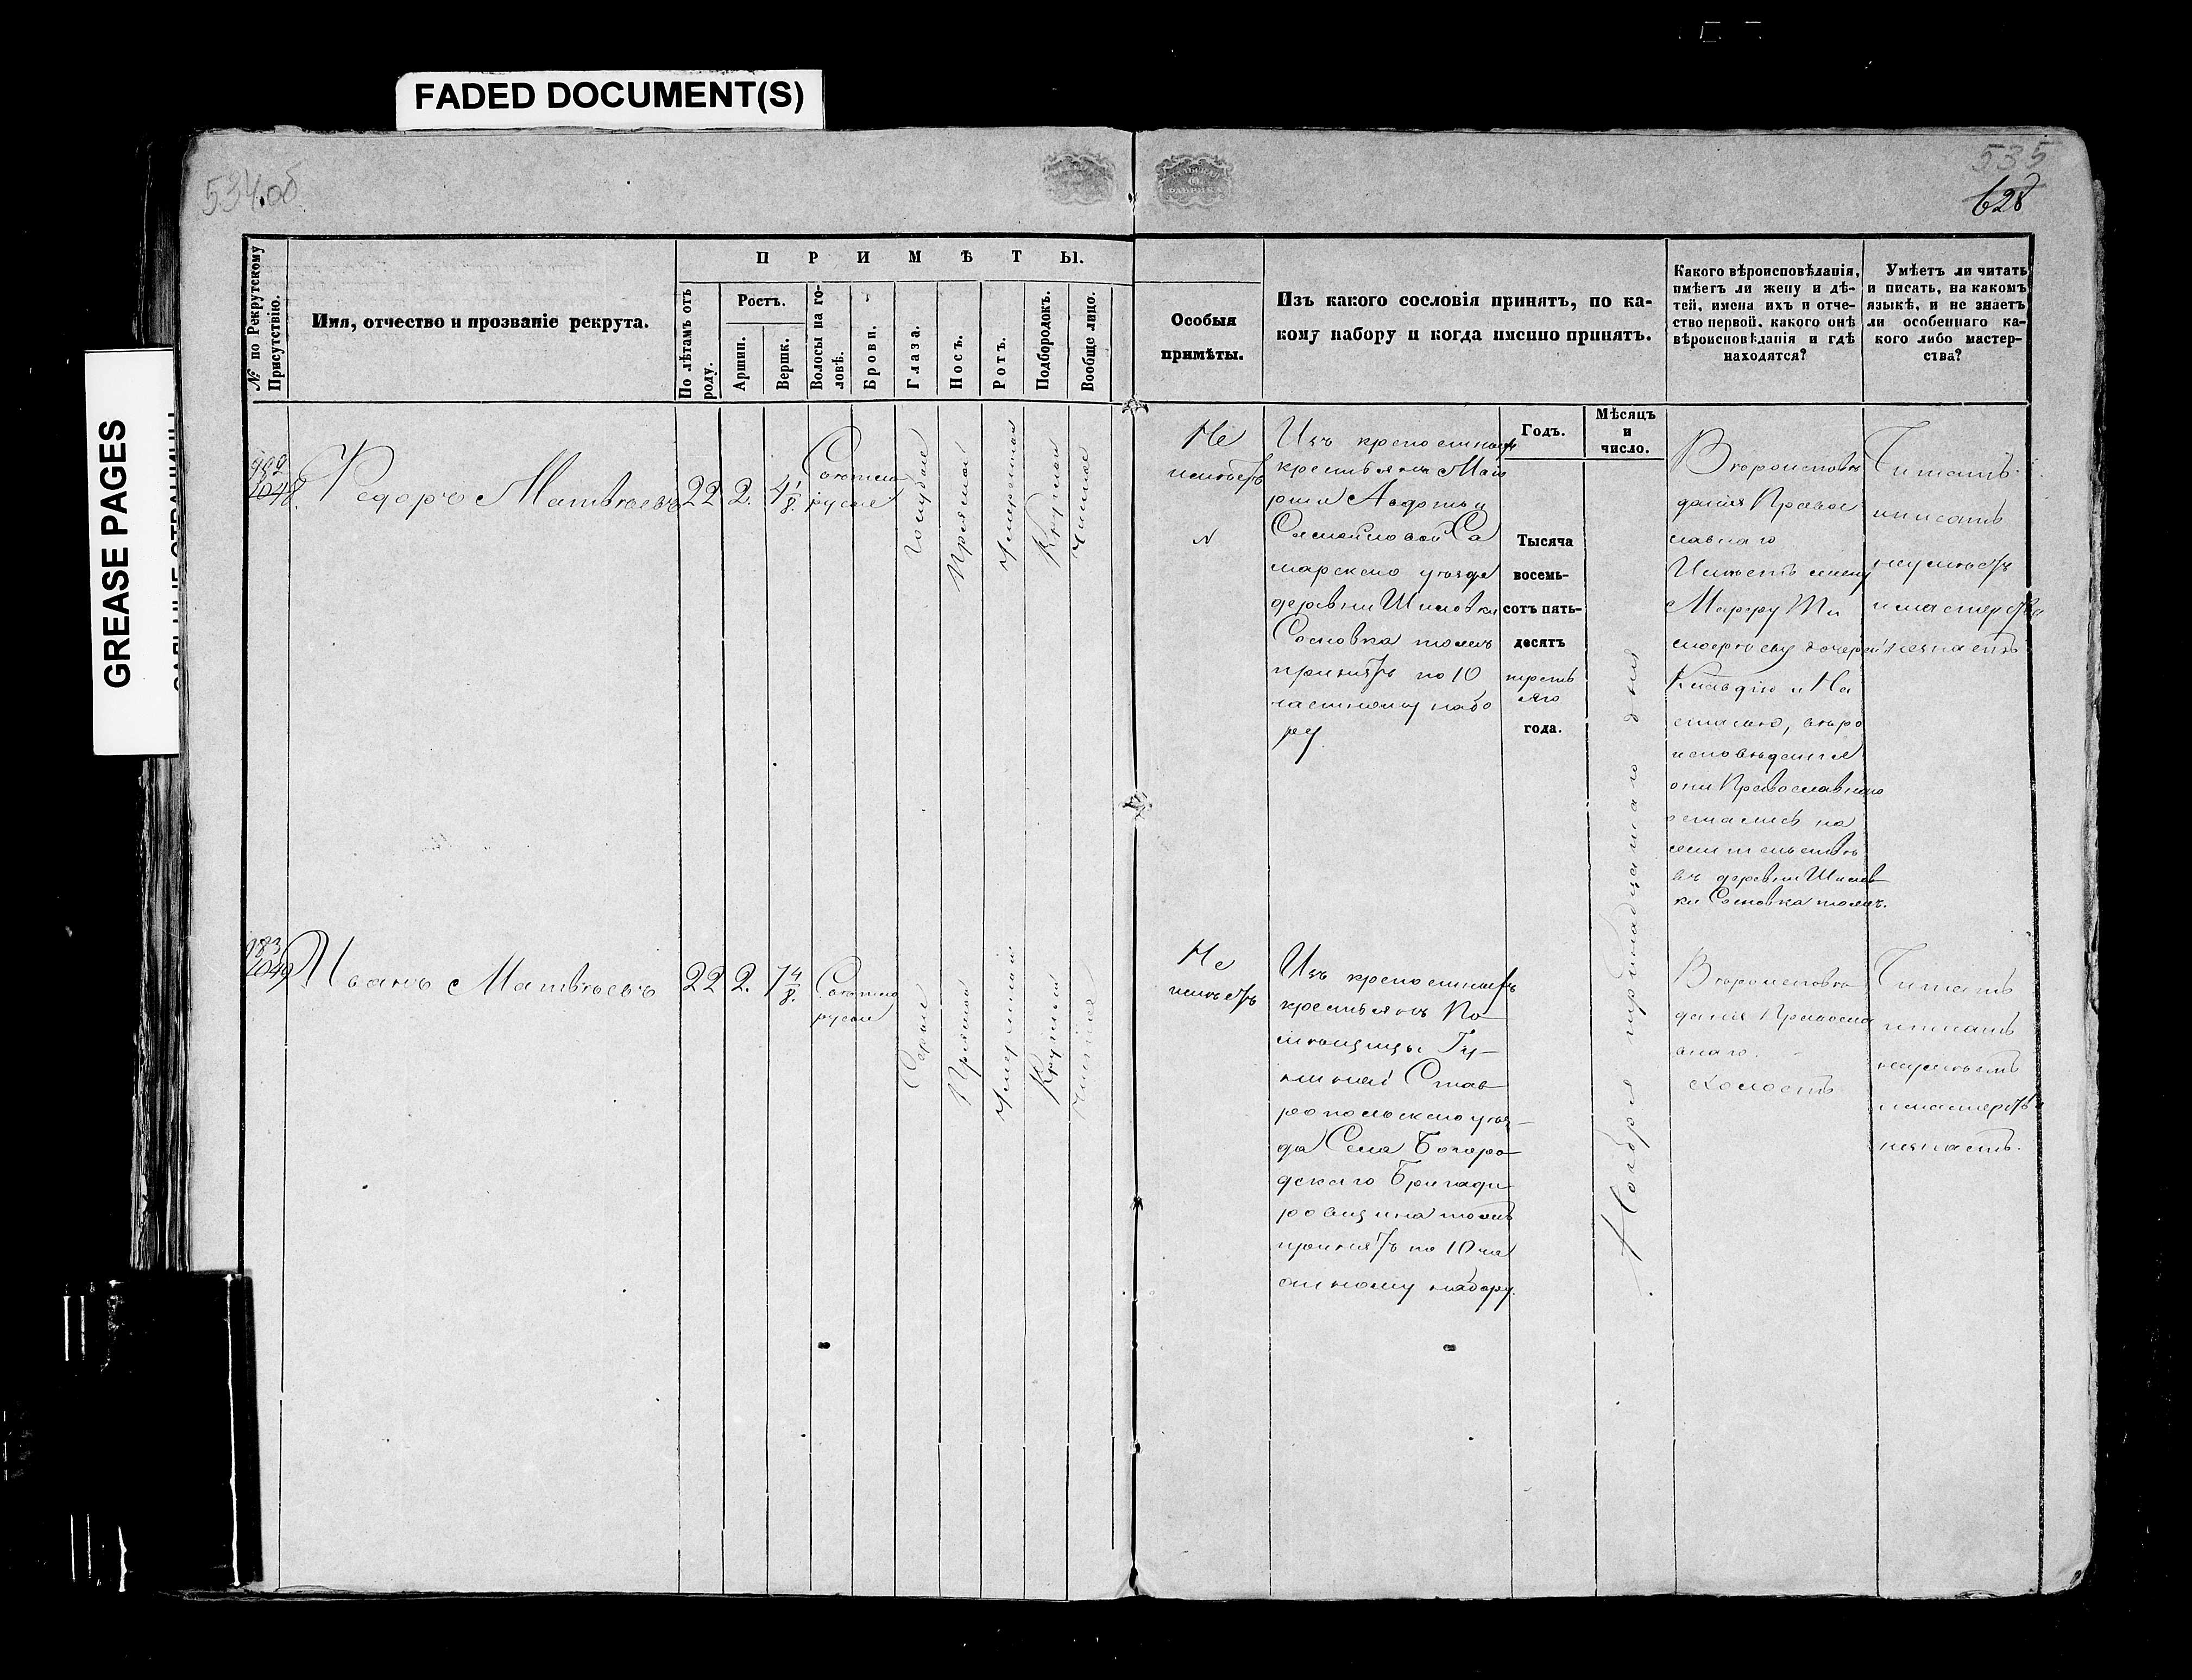 FADED DOCUMENT(S)
GREASE PAGES
534.об
535
628
№ по Рекрутскому Присутствію.
Имя, отчество и прозваніе рекрута.
ПРИМѢТЫ.
По лѣтамъ отъ роду.
Ростъ.
Аршин.
Вершк.
Волосы на головѣ.
Брови.
Глаза.
Носъ.
Ротъ.
Подбородокъ.
Вообще лицо.
Особыя
примѣты.
Изъ какого сословія принятъ, по ка-
кому набору и когда именно принятъ.
Какого вѣроисповѣданія,
имѣетъ ли жену и дѣ-
тей, имена ихъ и отче-
ство первой, какого онѣ
вѣроисповѣданія и гдѣ
находятся?
Умѣетъ ли читать
и писать, на какомъ
языкѣ, и не знаетъ
ли особеннаго ка-
кого либо мастер-
ства?
Годъ.
Мѣсяцъ
и
число.
1048.
Федоръ Матвѣевъ
22
2.
4 1/8.
Свѣтло
русые
Голубые
Прямой
Умеренной
Круглой
Чистое
Не
имѣетъ
Изъ крепостныхъ
крестьянъ Маіо
рши Авдотьи
Самойловой Са
марскаго уѣзда
деревни Шиловки
Сосновка тожъ
принятъ по 10
частному набо
ру.
Тысяча
восемь-
сотъ пять-
десятъ
третья
го
года.
Ноября тринадцатаго дня
Вѣроисповѣ
данія Правос
лавнаго
Имѣетъ жену
Марфу Ти
мофѣеву дочерей
Клавдію и На
сталью, вѣро
исповѣданія
они Православнаго
остались на
жительствѣ
въ деревни Шилов
ки Сосновка тожъ.
Читать
писать
неумѣетъ
и мастерства
незнаетъ
983
1049
Иванъ Матвѣевъ
22
2.
7 4/8.
Свѣтло
русые
Серые
Прямой
Умеренной
Круглой
Чистое
Не
имѣетъ
Изъ крепостныхъ
крестьянъ По
мѣщицы
Став
ропольскаго уѣз-
да Села Богоро
дскаго Бригади
ровщина тожъ
принятъ по 10 ча
стному набору.
Вѣроисповѣ
данія Правосла
внаго.
Холостъ
Читать
писать
неумѣетъ
и мастерства
незнаетъ.